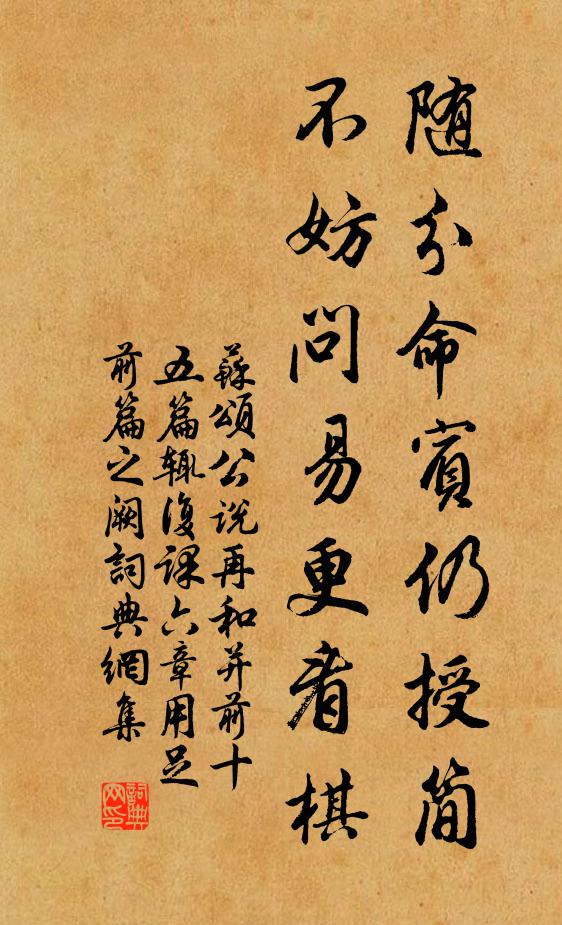 随分命賓仍授简
不妨問易更看棋
蘇頌公说再和并前十
五篇辄復课六章用足
前篇之阙詞典網集
詞典
网印